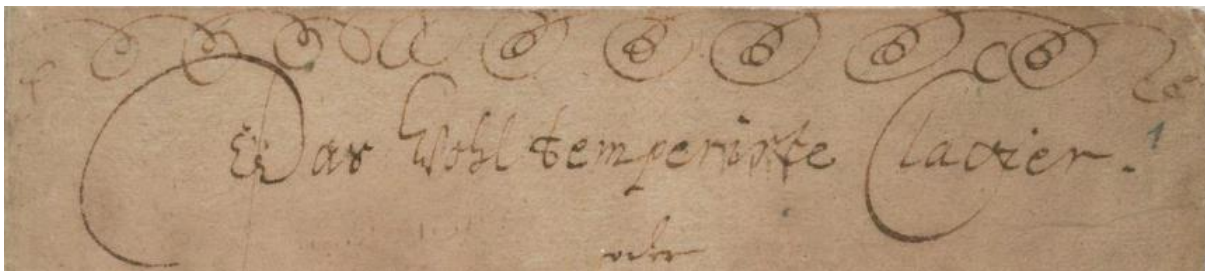 Das Wohltemperirte Clavier. 1
oder